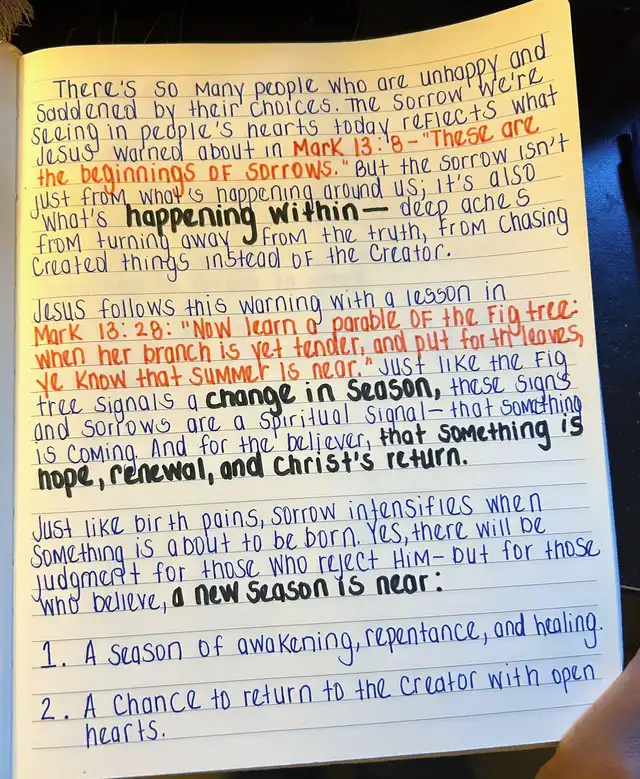 There's so many people who are unhappy and
saddened by their choices. The sorrow we're
seeing in people's hearts today reflects what
Jesus warned about in Mark 13:8-"These are
the beginnings of sorrows." But the sorrow isn't
just from what's happening around us; it's also
what's happening within— deep aches
from turning away from the truth, from chasing
created things instead of the Creator.
Jesus follows this warning with a lesson in
Mark 13:28: "Now learn a parable of the fig tree:
when her branch is yet tender, and put forth leaves,
ye know that summer is near." Just like the fig
tree signals a change in season, these signs
and sorrows are a spiritual signal— that something
is coming. And for the believer, that something is
hope, renewal, and Christ's return.
Just like birth pains, sorrow intensifies when
something is about to be born. Yes, there will be
judgment for those who reject Him— but for those
who believe, a new season is near:
1. A season of awakening, repentance, and healing.
2. A chance to return to the Creator with open
hearts.